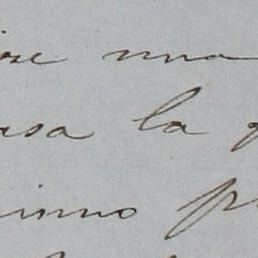 ire una
asa la
inno